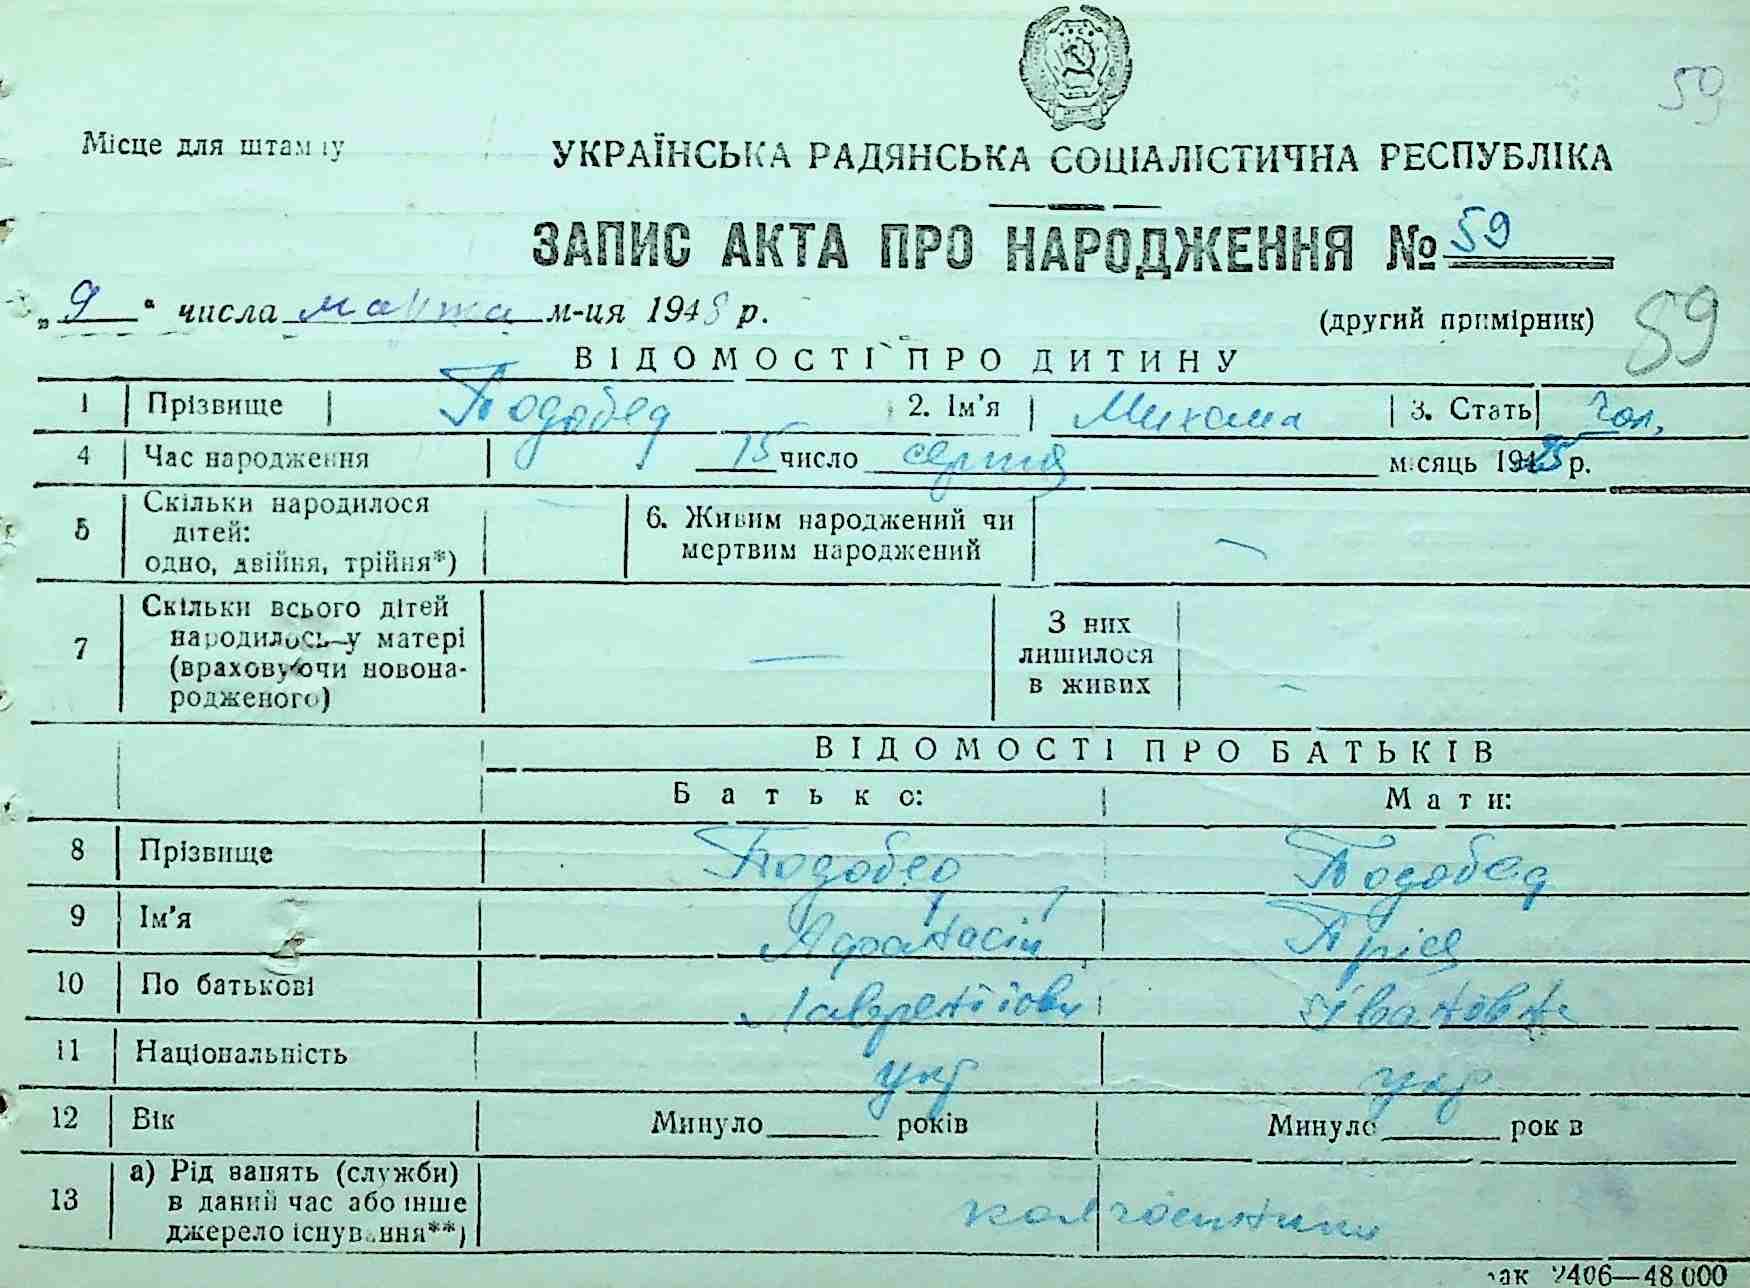 59
Місце для штампу
УКРАЇНСЬКА РАДЯНСЬКА СОЦІАЛІСТИЧНА РЕСПУБЛІКА
ЗАПИС АКТА ПРО НАРОДЖЕННЯ № 59
„9“ числа марта м-ця 1948 р.
(другий примірник) 59
ВІДОМОСТІ ПРО ДИТИНУ
1 Прізвище Подобед 2. Ім'я Михайла 3. Стать чол,
4 Час народження 15 число серпня місяць 1925 р.
5 Скільки народилося дітей: одно, двійня, трійня*) — 6. Живим народжений чи мертвим народжений —
7 Скільки всього дітей народилось у матері (враховуючи новонародженого) — З них лишилося в живих —
ВІДОМОСТІ ПРО БАТЬКІВ
Батько: Мати:
8 Прізвище Подобед Подобед
9 Ім'я Афанасій Пріся
10 По батькові Лаврентіови Івановна
11 Національність укр укр
12 Вік Минуло років Минуло років
13 а) Рід занять (служби) в даний час або інше джерело існування**) колгоспники
зак 2406—48.000